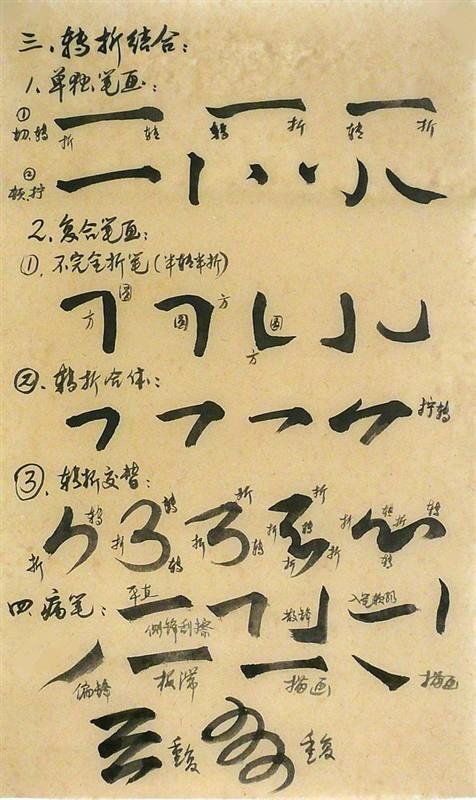 三、转折结合：
1.单独笔画：
①切、转 折 转 转 折 转 折
②顿、拧
2.复合笔画：
①.不完全折笔（半转半折）
方 圆 圆 方 圆 方
②.转折合体：
拧转
③.转折交替：
折 转 折 转 转 折 折 转 折 折 转 折 折 折 转 折 转 转
四、病笔：
平直 侧锋刮擦 散锋
偏锋 板滞 描画 描画
重复 重复